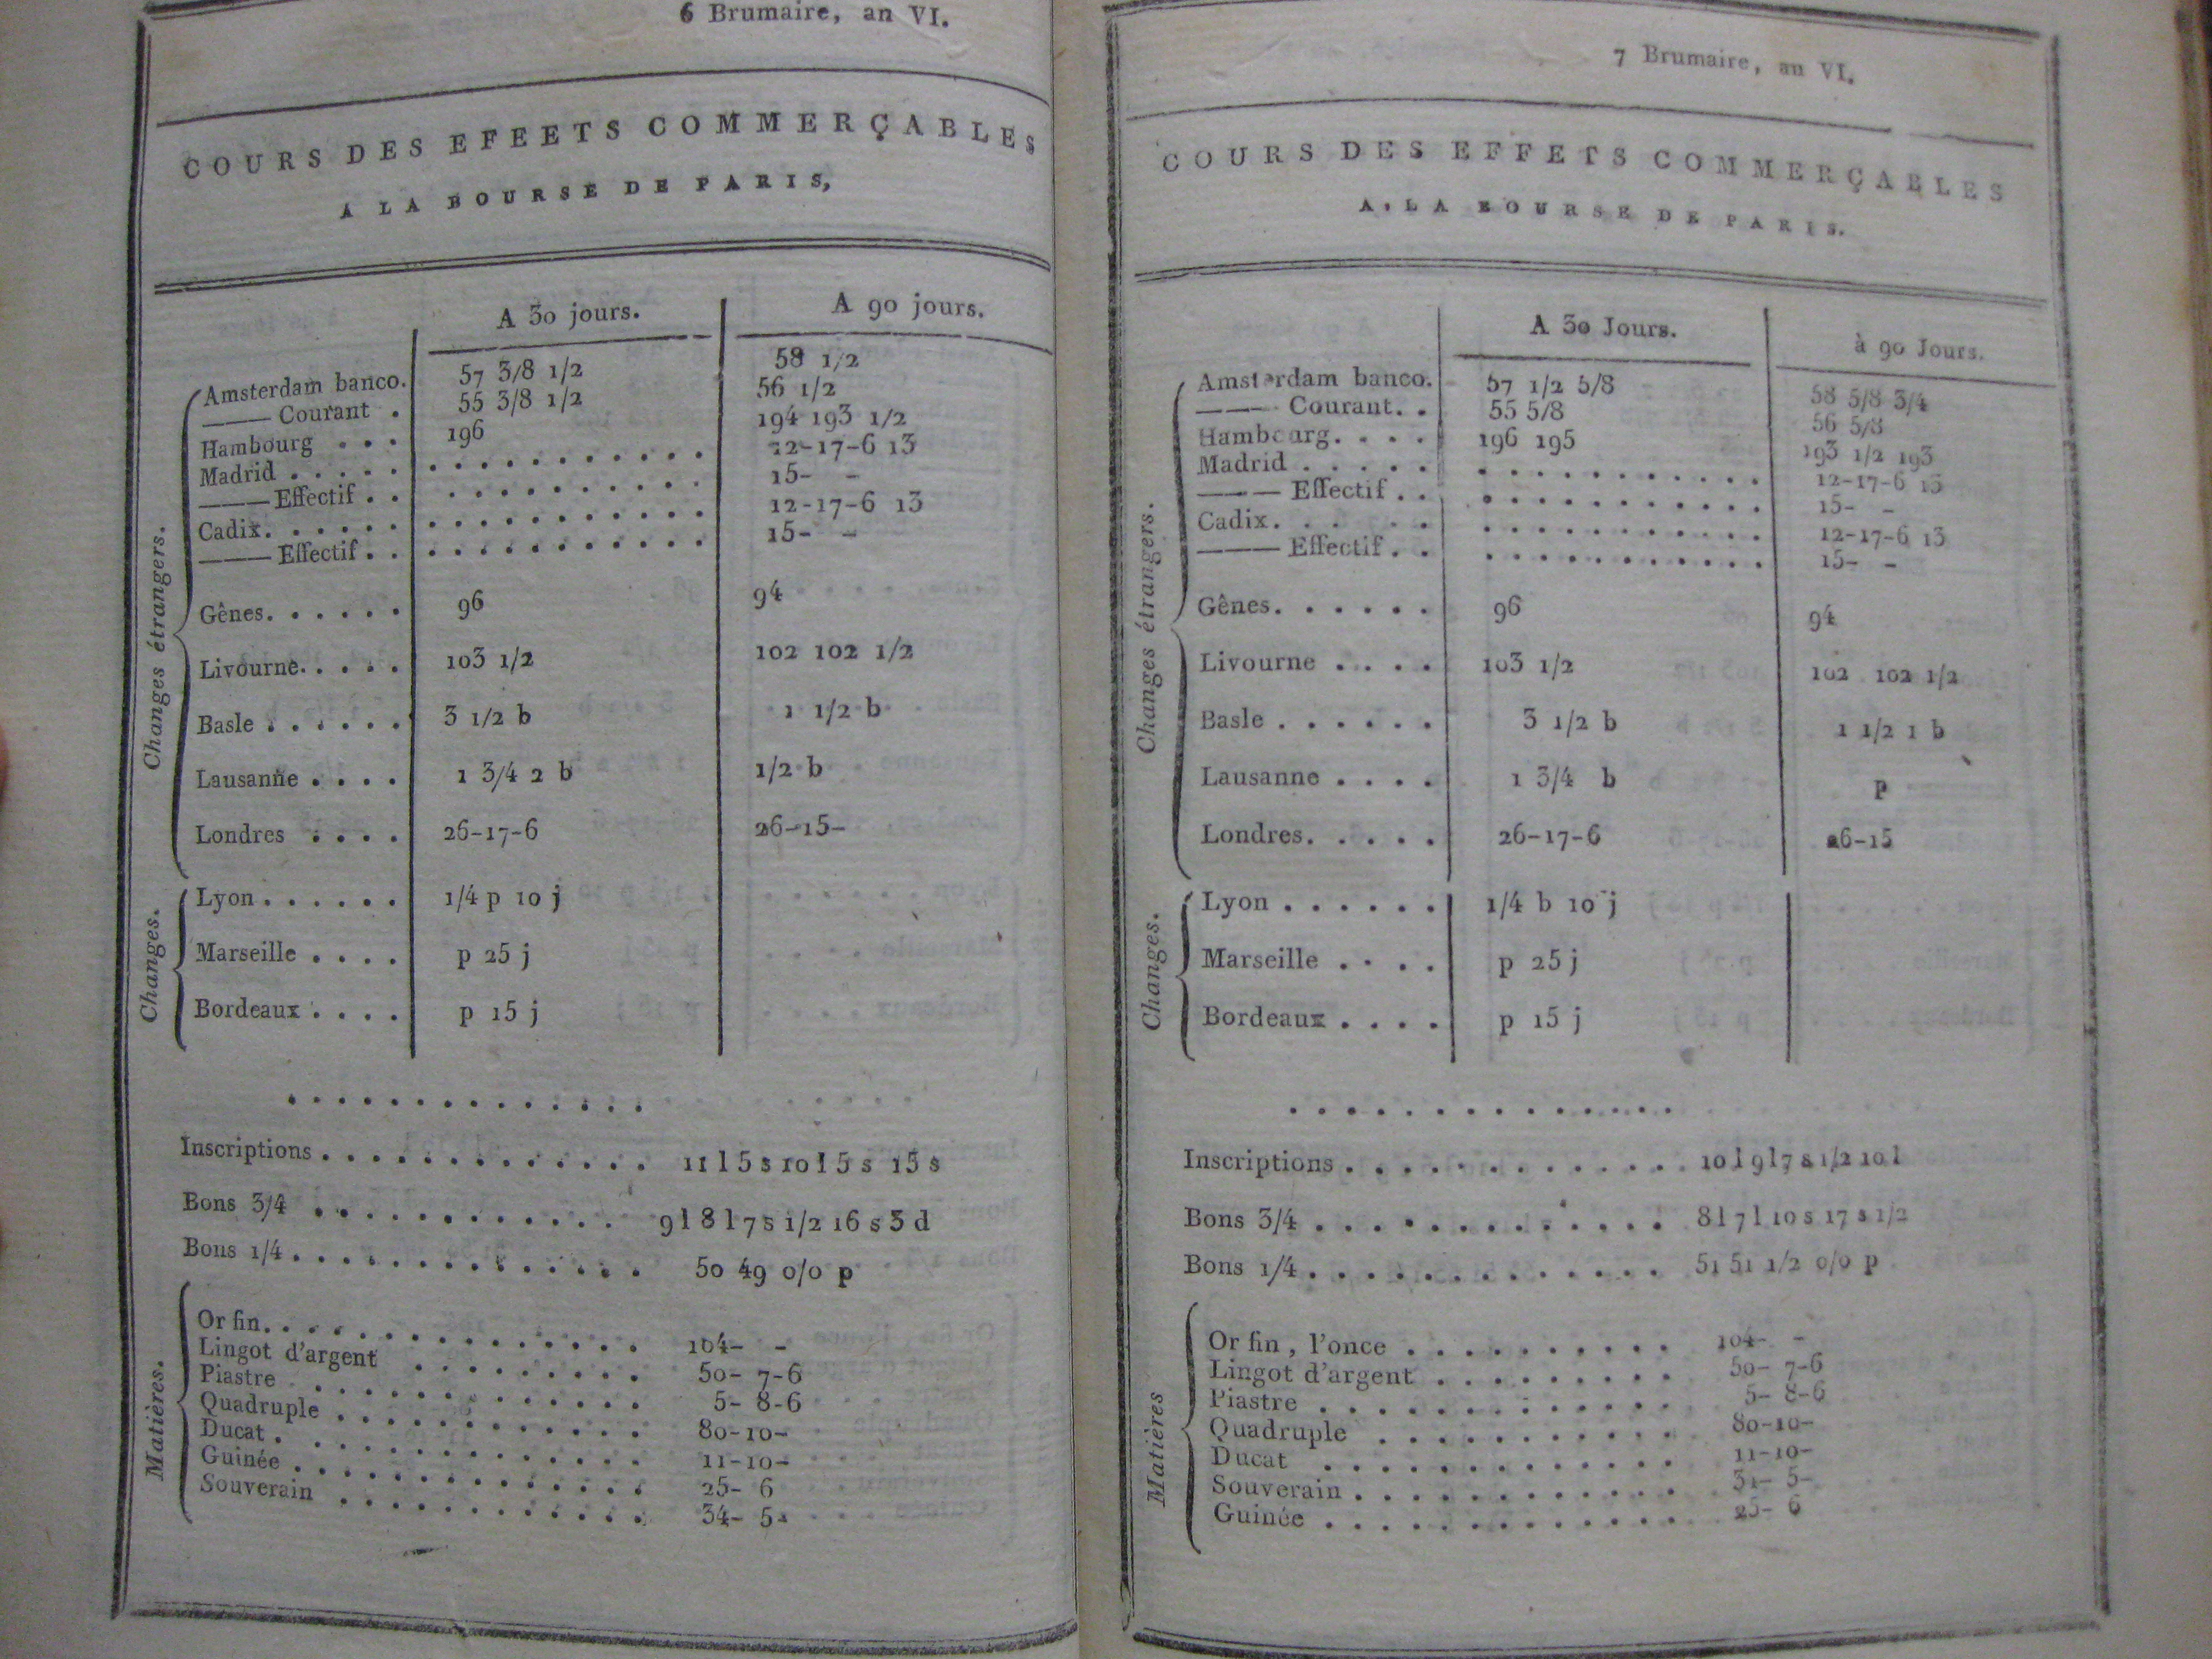 6 Brumaire, an VI.
COURS DES EFEETS COMMERÇABLES
A LA BOURSE DE PARIS,
A 30 jours. A 90 jours.
Changes étrangers.
Amsterdam banco. 57 3/8 1/2 58 1/2
——— Courant . 55 3/8 1/2 56 1/2
Hambourg . . . 196 194 193 1/2
Madrid . . . . . . . . . . . . . . . . 12-17-6 13
——— Effectif . . . . . . . . . . . . . 15- -
Cadix. . . . . . . . . . . . . . . . . 12-17-6 13
——— Effectif . . . . . . . . . . . . . 15- -
Gênes. . . . . . 96 94
Livourne. . . . . 103 1/2 102 102 1/2
Basle . . . . . . 3 1/2 b 1 1/2 b
Lausanne . . . . 1 3/4 2 b 1/2 b
Londres . . . . 26-17-6 26-15-
Changes.
Lyon . . . . . . 1/4 p 10 j
Marseille . . . . p 25 j
Bordeaux . . . . p 15 j
. . . . . . . . . . . . . .
Inscriptions . . . . . . . . . . . . . 11 l 5 s 10 l 5 s 15 s
Bons 3/4 . . . . . . . . . . . . 9 l 8 l 7 s 1/2 16 s 3 d
Bons 1/4 . . . . . . . . . . . . . 50 49 0/0 p
Matières.
Or fin. . . . . . . . . . . . . . . 104- -
Lingot d'argent . . . . . . . . . 50- 7-6
Piastre . . . . . . . . . . . . . 5- 8-6
Quadruple . . . . . . . . . . . . 80-10-
Ducat . . . . . . . . . . . . . . 11-10-
Guinée . . . . . . . . . . . . . . 25- 6
Souverain . . . . . . . . . . . . 34- 5-
7 Brumaire, an VI.
COURS DES EFFETS COMMERÇABLES
A LA BOURSE DE PARIS.
A 30 Jours. à 90 Jours.
Changes étrangers.
Amsterdam banco. 57 1/2 5/8 58 5/8 3/4
——— Courant. . 55 5/8 56 5/8
Hambourg. . . . 196 195 193 1/2 193
Madrid . . . . . . . . . . . . . . . . 12-17-6 13
——— Effectif . . . . . . . . . . . . . 15- -
Cadix. . . . . . . . . . . . . . . . . 12-17-6 13
——— Effectif . . . . . . . . . . . . . 15- -
Gênes. . . . . . 96 94
Livourne . . . . 103 1/2 102 102 1/2
Basle . . . . . . 3 1/2 b 1 1/2 1 b
Lausanne . . . . 1 3/4 b p
Londres. . . . . 26-17-6 26-15
Changes.
Lyon . . . . . . 1/4 b 10 j
Marseille . . . . p 25 j
Bordeaux . . . . p 15 j
. . . . . . . . . . . . . . .
Inscriptions . . . . . . . . . . . . . 10 l 9 l 7 s 1/2 10 l
Bons 3/4 . . . . . . . . . . . . . 8 l 7 l 10 s 17 s 1/2
Bons 1/4 . . . . . . . . . . . . . 51 51 1/2 0/0 p
Matières
Or fin , l'once . . . . . . . . . . 104- -
Lingot d'argent . . . . . . . . . 50- 7-6
Piastre . . . . . . . . . . . . . 5- 8-6
Quadruple . . . . . . . . . . . 80-10-
Ducat . . . . . . . . . . . . . 11-10-
Souverain . . . . . . . . . . . . 34- 5-
Guinée . . . . . . . . . . . . . 25- 6